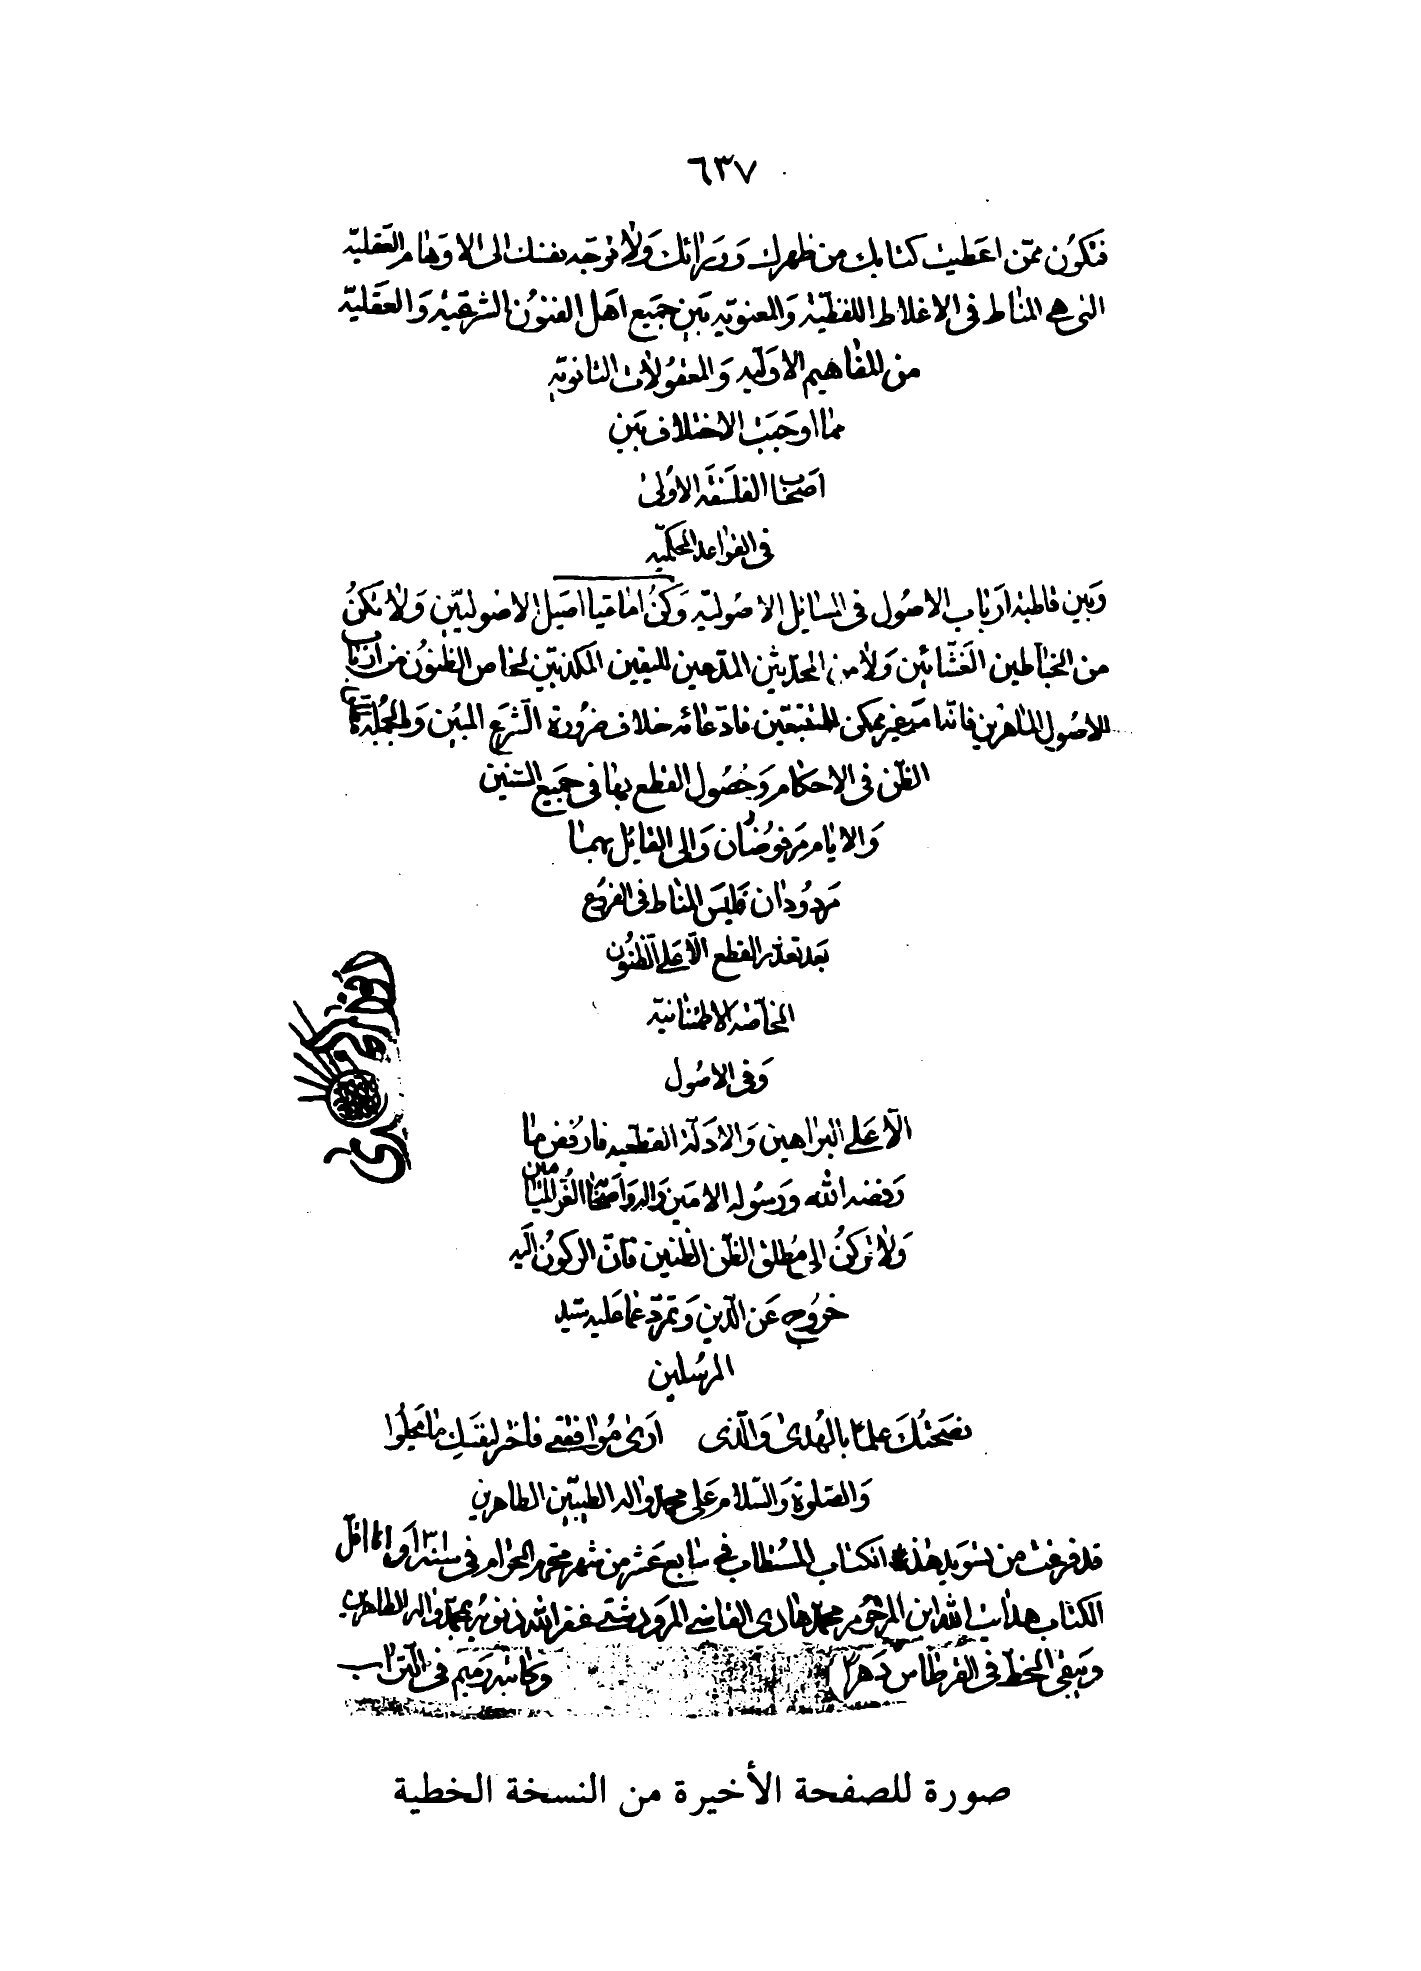 ٦٣٧
فتكون ممّن اعطيت كتابك من ظهرك وورائك ولا توجه نفسك الى الاوهام العقلية
التى هى المناط فى الاغلاط اللفظية والمعنوية بين جميع اهل الفنون الشرعية والعقلية
من المفاهيم الاولية والمعقولات الثانوية
مما اوجبت الاختلاف بين
اصحاب الفلسفة الاولى
فى القواعد الحكمية
وبين قاطبة ارباب الاصول فى المسائل الاصولية وكن اماميا اصيل الاصوليين ولا تكن
من الخباطين الغشائين ولا من المحدثين المدعين لليقين المكذبين لخاص الظنون من ارباب
الاصول الماهرين فانه امر غير ممكن للمتتبعين فادعائه خلاف ضرورة الشرع المبين
الظن فى الاحكام وحصول القطع بها فى جميع السنين
والايام مرفوضان والى القائل بهما
مردودان فليس المناط فى الفروع
بعد تعذر القطع الا على الظنون
الخاصة الاطمئنانية
وفى الاصول
الا على البراهين والادلة القطعية فارفض ما
رفضه الله ورسوله الامين واله واصحابه الغر الميامين
ولا تركن الى مطلق الظن الظنين فان الركون اليه
خروج عن الدين وتمرد عما عليه سيد
المرسلين
نصحتك علما بالهدى والذى ارى موافقى فاختر لنفسك ما يحلوا
والصلوة والسلام على محمد واله الطيبين الطاهرين
قد فرغت من تسويد هذه الكتاب المستطاب فى سابع عشر من شهر محرم الحرام فى سنة وانا اقل
الكتاب هدايت الله ابن المرحوم محمد هادى القاضى المرودشتى غفر الله ذنوبه بمحمد واله الطاهرين
ويبقى الخط فى القرطاس دهرا وكاتبه رميم فى التراب
صورة للصفحة الأخيرة من النسخة الخطية